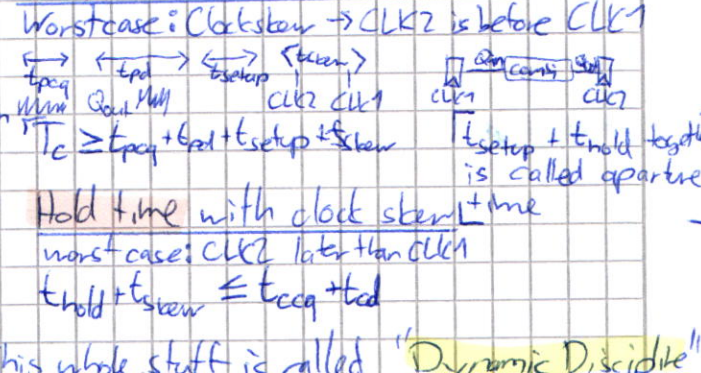 Worstcase: Clockskew → CLK2 is before CLK1
tpcq tpd tsetup tskew
Qout CLK2 CLK1
combi
CLK1 CLK2
Tc ≥ tpcq + tpd + tsetup + tskew
tsetup + thold togeth
is called aparture
time
Hold time with clock skew
worst case: CLK2 later than CLK1
thold + tskew ≤ tccq + tcd
his whole stuff is called "Dynamic Discipline"